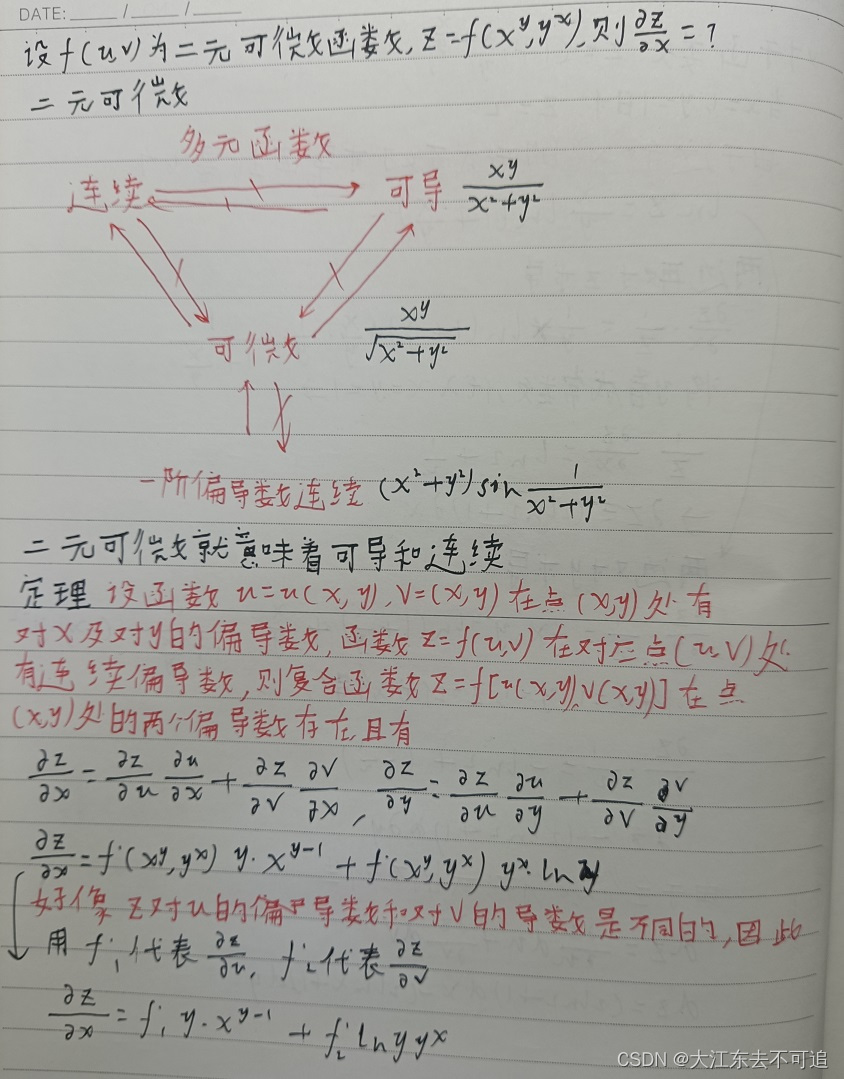 DATE: ____ / ____ / ____
设f(u,v)为二元可微函数,z=f(x^y,y^x),则∂z/∂x=?
二元可微
多元函数
连续 可导 xy/(x²+y²)
可微 xy/√(x²+y²)
一阶偏导数连续 (x²+y²)sin 1/(x²+y²)
二元可微就意味着可导和连续
定理 设函数 u=u(x,y),v=(x,y)在点(x,y)处有
对x及对y的偏导数,函数z=f(u,v)在对应点(u,v)处
有连续偏导数,则复合函数z=f[u(x,y),v(x,y)]在点
(x,y)处的两个偏导数存在,且有
∂z/∂x=∂z/∂u ∂u/∂x+∂z/∂v ∂v/∂x, ∂z/∂y=∂z/∂u ∂u/∂y+∂z/∂v ∂v/∂y
∂z/∂x=f'(x^y,y^x) y·x^(y-1)+f'(x^y,y^x) y^x·ln y
好像z对u的偏导数和对v的导数是不同的,因此
用f'₁代表∂z/∂u, f'₂代表∂z/∂v
∂z/∂x=f'₁ y·x^(y-1)+f'₂ ln y y^x
CSDN @大江东去不可追